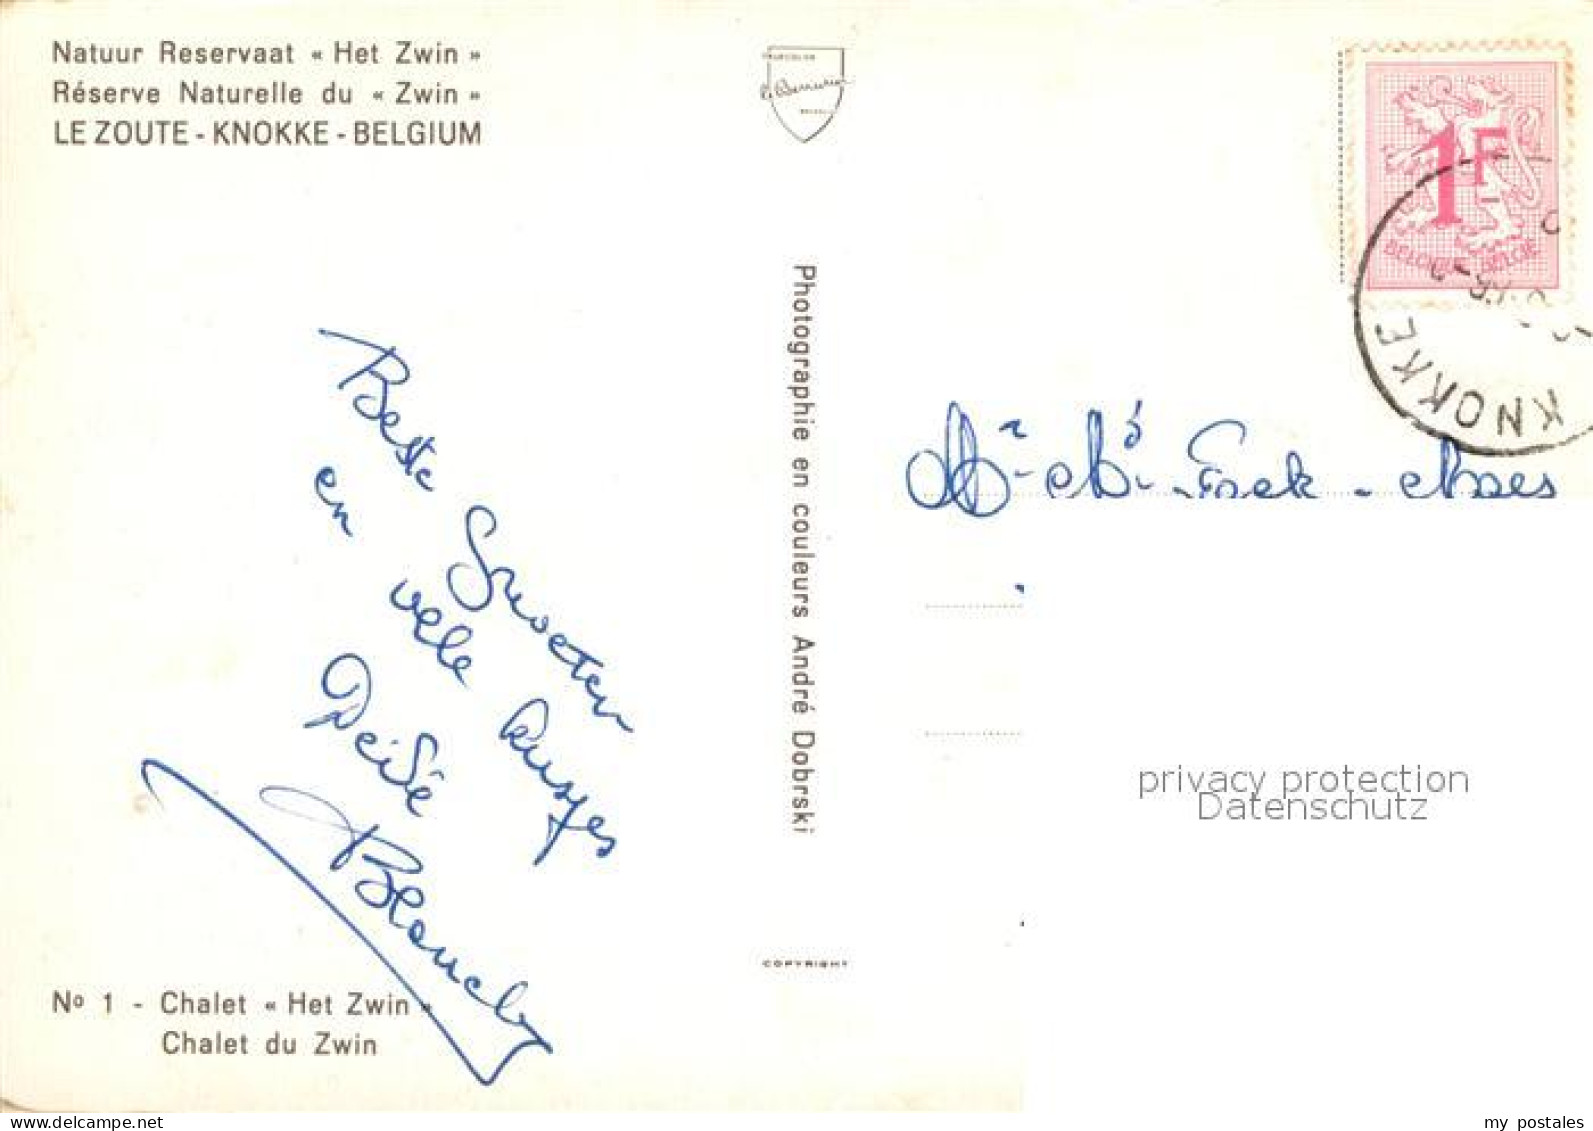 Natuur Reservaat « Het Zwin »
Réserve Naturelle du « Zwin »
LE ZOUTE - KNOKKE - BELGIUM
Beste Groeten
en vele kusjes
Blanche
Nº 1 - Chalet « Het Zwin »
Chalet du Zwin
Photographie en couleurs André Dobrski
COPYRIGHT
1F
BELGIQUE - BELGIË
KNOKKE
privacy protection
Datenschutz
my postales